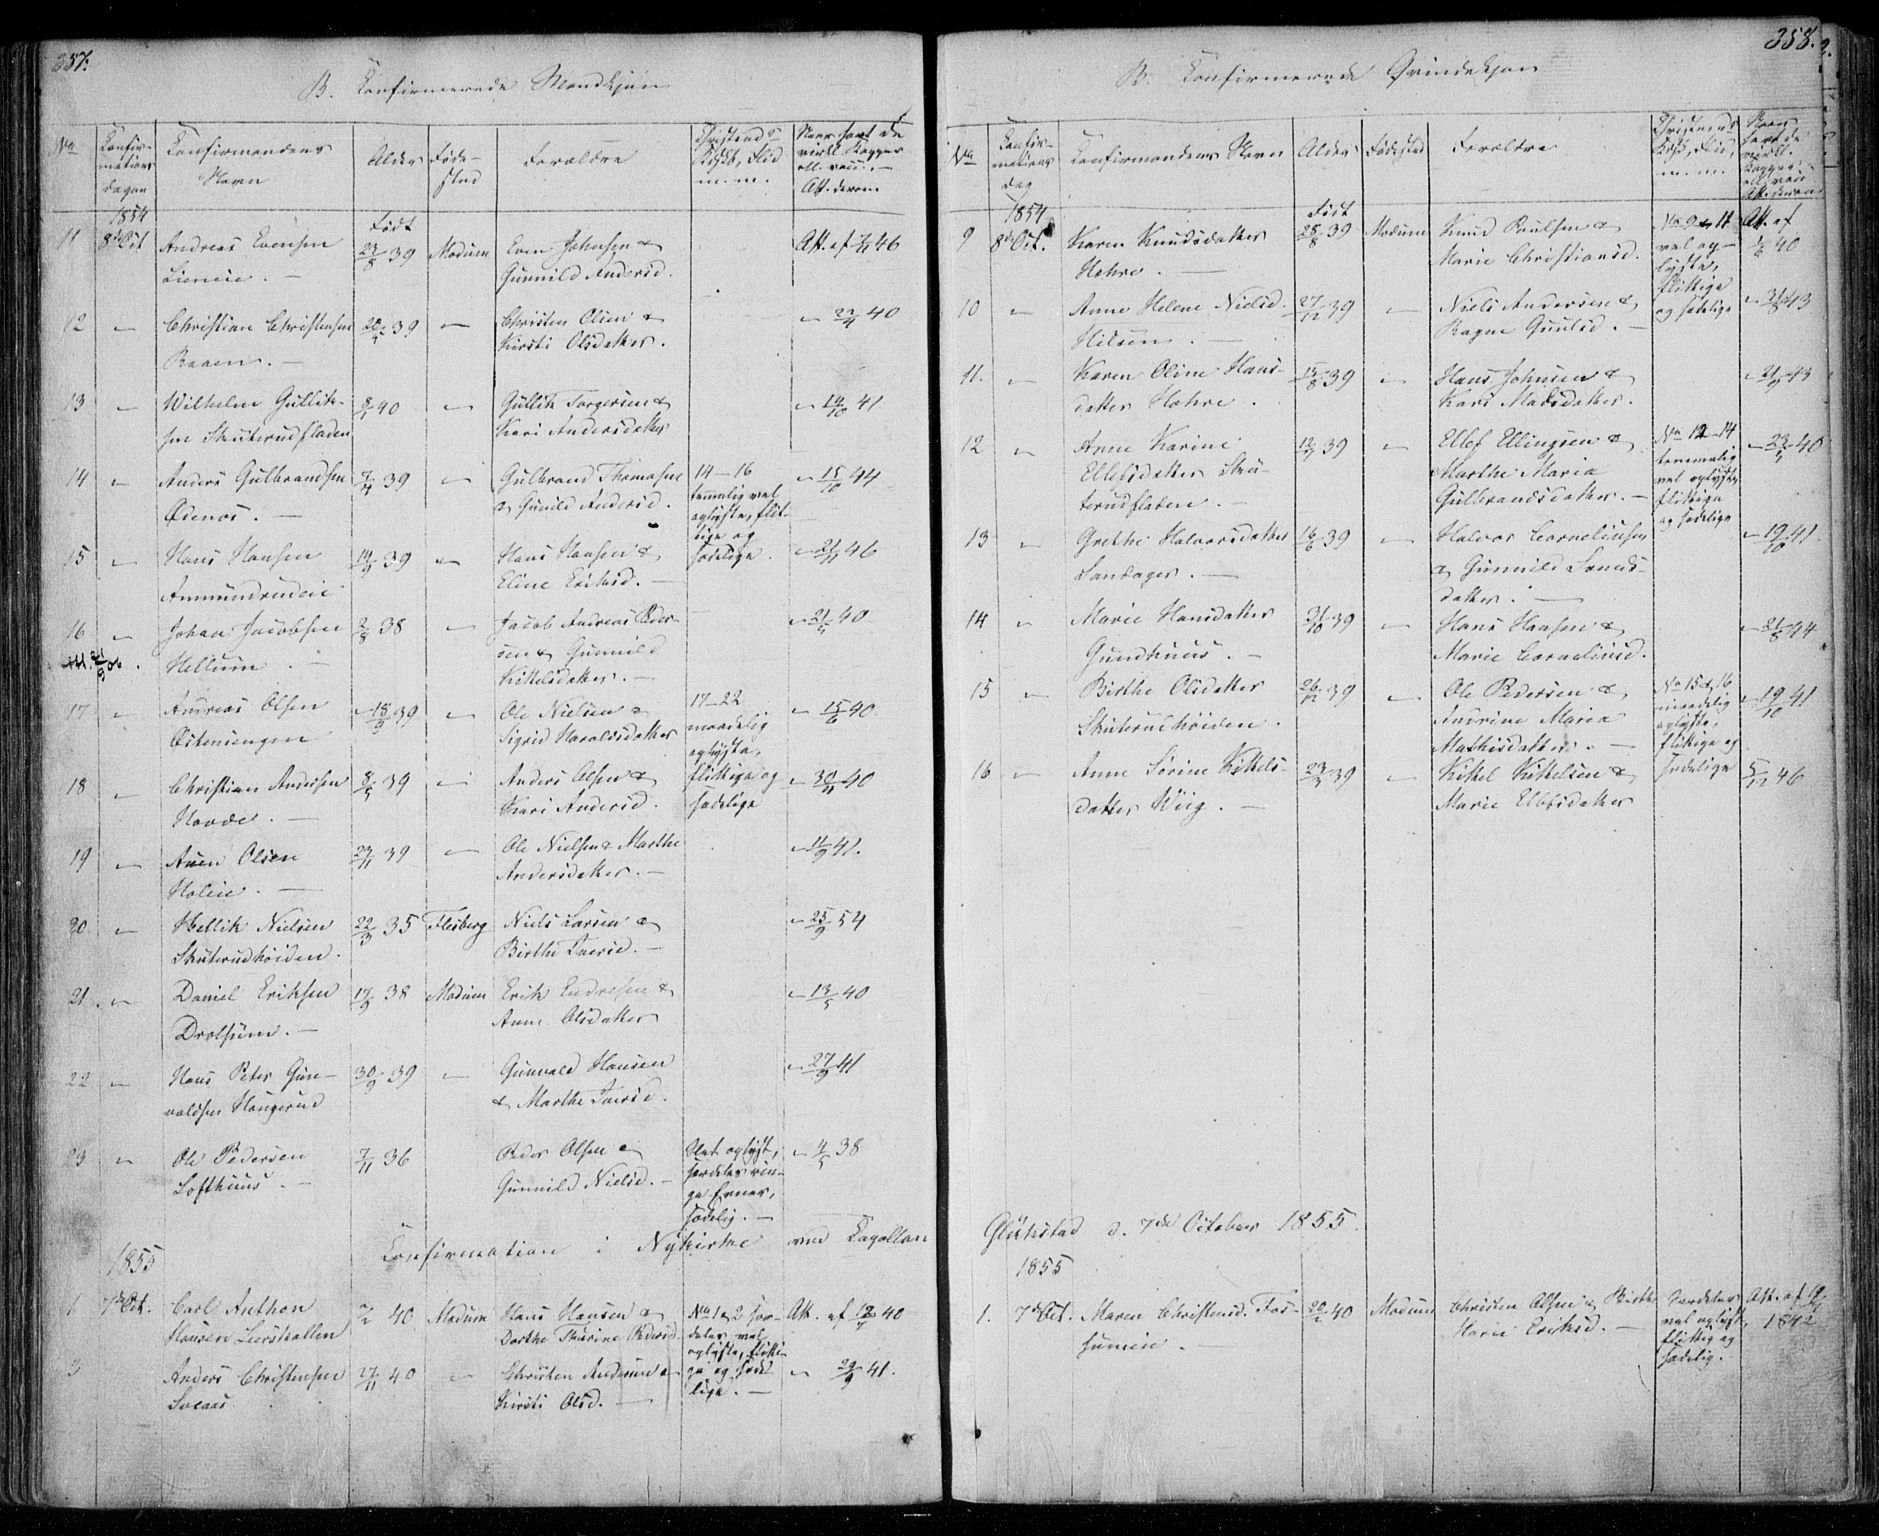 357.
B. Confirmerede Mandkjøn
No
Confirmations dagen
Confirmandens Navn
Alder
Fødested
Forældre
Christend. Kdsk., Flid m.m.
Naar havt de virkl. Kopper ell. vacc. — Att. derom
1854
Født
11 8de Oct Andreas Evensen Lieneie. — 27/8 39 Modum Even Johnsen & Gunnild Andersd. Att. af 7/7 46
12 " Christian Christensen Braaen. — 28/5 39 " Christen Olsen & Kirsti Olsdatter. " 22/4 40
13 " Wilhelm Gulliksen Skuterudfladen 8/1 40 " Gullik Torgersen & Kari Andersdatter " 19/10 41
14 " Anders Gulbrandsen Ødenæs. — 7/4 39 " Gulbrand Thomasen & Gunild Andersd. 14–16 temmelig vel oplyste, flittige og sædelige. " 15/10 44
15 " Hans Hansen Ammundrudeie 19/9 39 " Hans Hansen & Eline Eriksd. — " 21/11 46
16 " Johan Jacobsen Hellum. — 2/8 38 " Jacob Andreas Pedersen & Gunnild Kittelsdatter. — " 21/5 40
Att. 21/5 06.
17 " Andreas Olsen Østensengen " 18/9 39 " Ole Nielsen & Sigrid Haraldsdatter 17–22 maadelig oplyste, flittige og sædelige " 15/6 40
18 " Christian Andersen Hovde. — 8/5 39 " Anders Olsen & Kari Andersd. " 30/11 40
19 " Auen Olsen Holeie. — 23/11 39 " Ole Nielsen & Marthe Andersdatter. — " 11/9 41.
20 " Hellik Nielsen Skuterudhøiden. 22/3 35 Flesberg Niels Larsen & Birthe Iversd. — " 25/9 54
21. " Daniel Eriksen Drolsum. — 17/9 38 Modum Erik Endresen & Anne Olsdatter " 13/5 40
22 " Hans Peter Gunvaldsen Haugerud 30/9 39 " Gunvald Hansen & Marthe Iversd. " 27/9 41
23 " Ole Pedersen Lofthuus. — 7/11 36 Peder Olsen & Gunnild Nielsd. — Slet oplyst, særdeles ringe Evner, sædelig. — " 4/5 38
1855 Confirmation i Nykirke ved Capellan
1 7de Oct. Carl Anthon Hansen Leershallen 2/2 40 Modum Hans Hansen & Dorthe Thurine Pedersd No 1 & 2 særdeles vel oplyste, flittige og sædelige. — Att. af 12/7 40
3 Anders Christensen Solaas 27/11 40 " Christen Andersen & Kirsti Olsd. — " 29/9 41.
358.
B. Confirmerede Qvindekjøn
No
Confirmations dag
Confirmandens Navn
Alder
Fødested
Forældre
Christends Kdsk., Flid, m.m.
Naar havde virkl. Kopper ell. vacc. Att. derom
1854
Født
9 8de Oct. Karen Knudsdatter Hehre. — 25/8 39 Modum Knud Paulsen & Marie Christiansd. No 9 & 11 vel oplyste, flittige og sædelige Att. af 1/6 40
10 " Anne Helene Nielsd. Hilsen. — 27/12 39 " Niels Andersen & Ragne Guulsd. — " 31/8 43
11. " Karen Oline Hansdatter Hohre. — 13/8 39 " Hans Johnsen & Kari Madsdatter. " 21/9 43
12 " Anne Karine Ellefsdatter Skuterudfladen. — 12/7 39 " Ellef Ellingsen & Marthe Maria Gulbrandsdatter. — No 12–14 temmelig vel oplyste, flittige og sædelige " 23/5 40
13 " Grethe Halvorsdatter Landager. — 16/6 39 " Halvor Corneliusen & Gunnild Larsdatter. — " 19/10 41
14 " Marie Hansdatter Gundhuus. — 31/10 39 " Hans Hansen & Marie Corneliusd. " 21/8 44
15 " Birthe Olsdatter Skuterudhøiden. — 26/12 39 " Ole Pedersen & Andrine Maria Mathisdatter. — No 15 & 16 maadelig oplyste, flittige og sædelige " 19/10 41
16 " Anne Sørine Kittelsdatter Wiig. — 23/3 39 " Kittel Kittelsen & Marie Ellefsdatter 5/12 46
Glükstad d. 7de October 1855.
1855
1. 7de Oct. Maren Christensd. Fossumeie. — 20/2 40 Modum Christen Olsen & Birthe Marie Eriksd. — Særdeles vel oplyst, flittig og sædelig. Att. af 1842